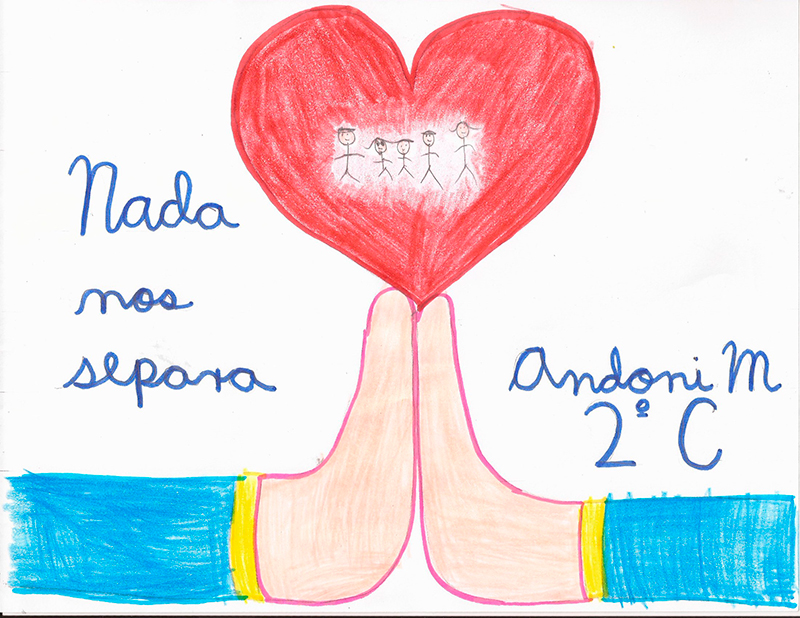 Nada
nos
separa
Andoni M
2º C